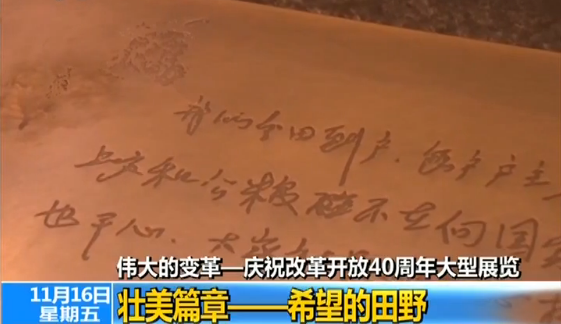 我们分田到户,每户户主
上交和公粮不在向国
也干心,大家
伟大的变革—庆祝改革开放40周年大型展览
11月16日
星期五
壮美篇章——希望的田野